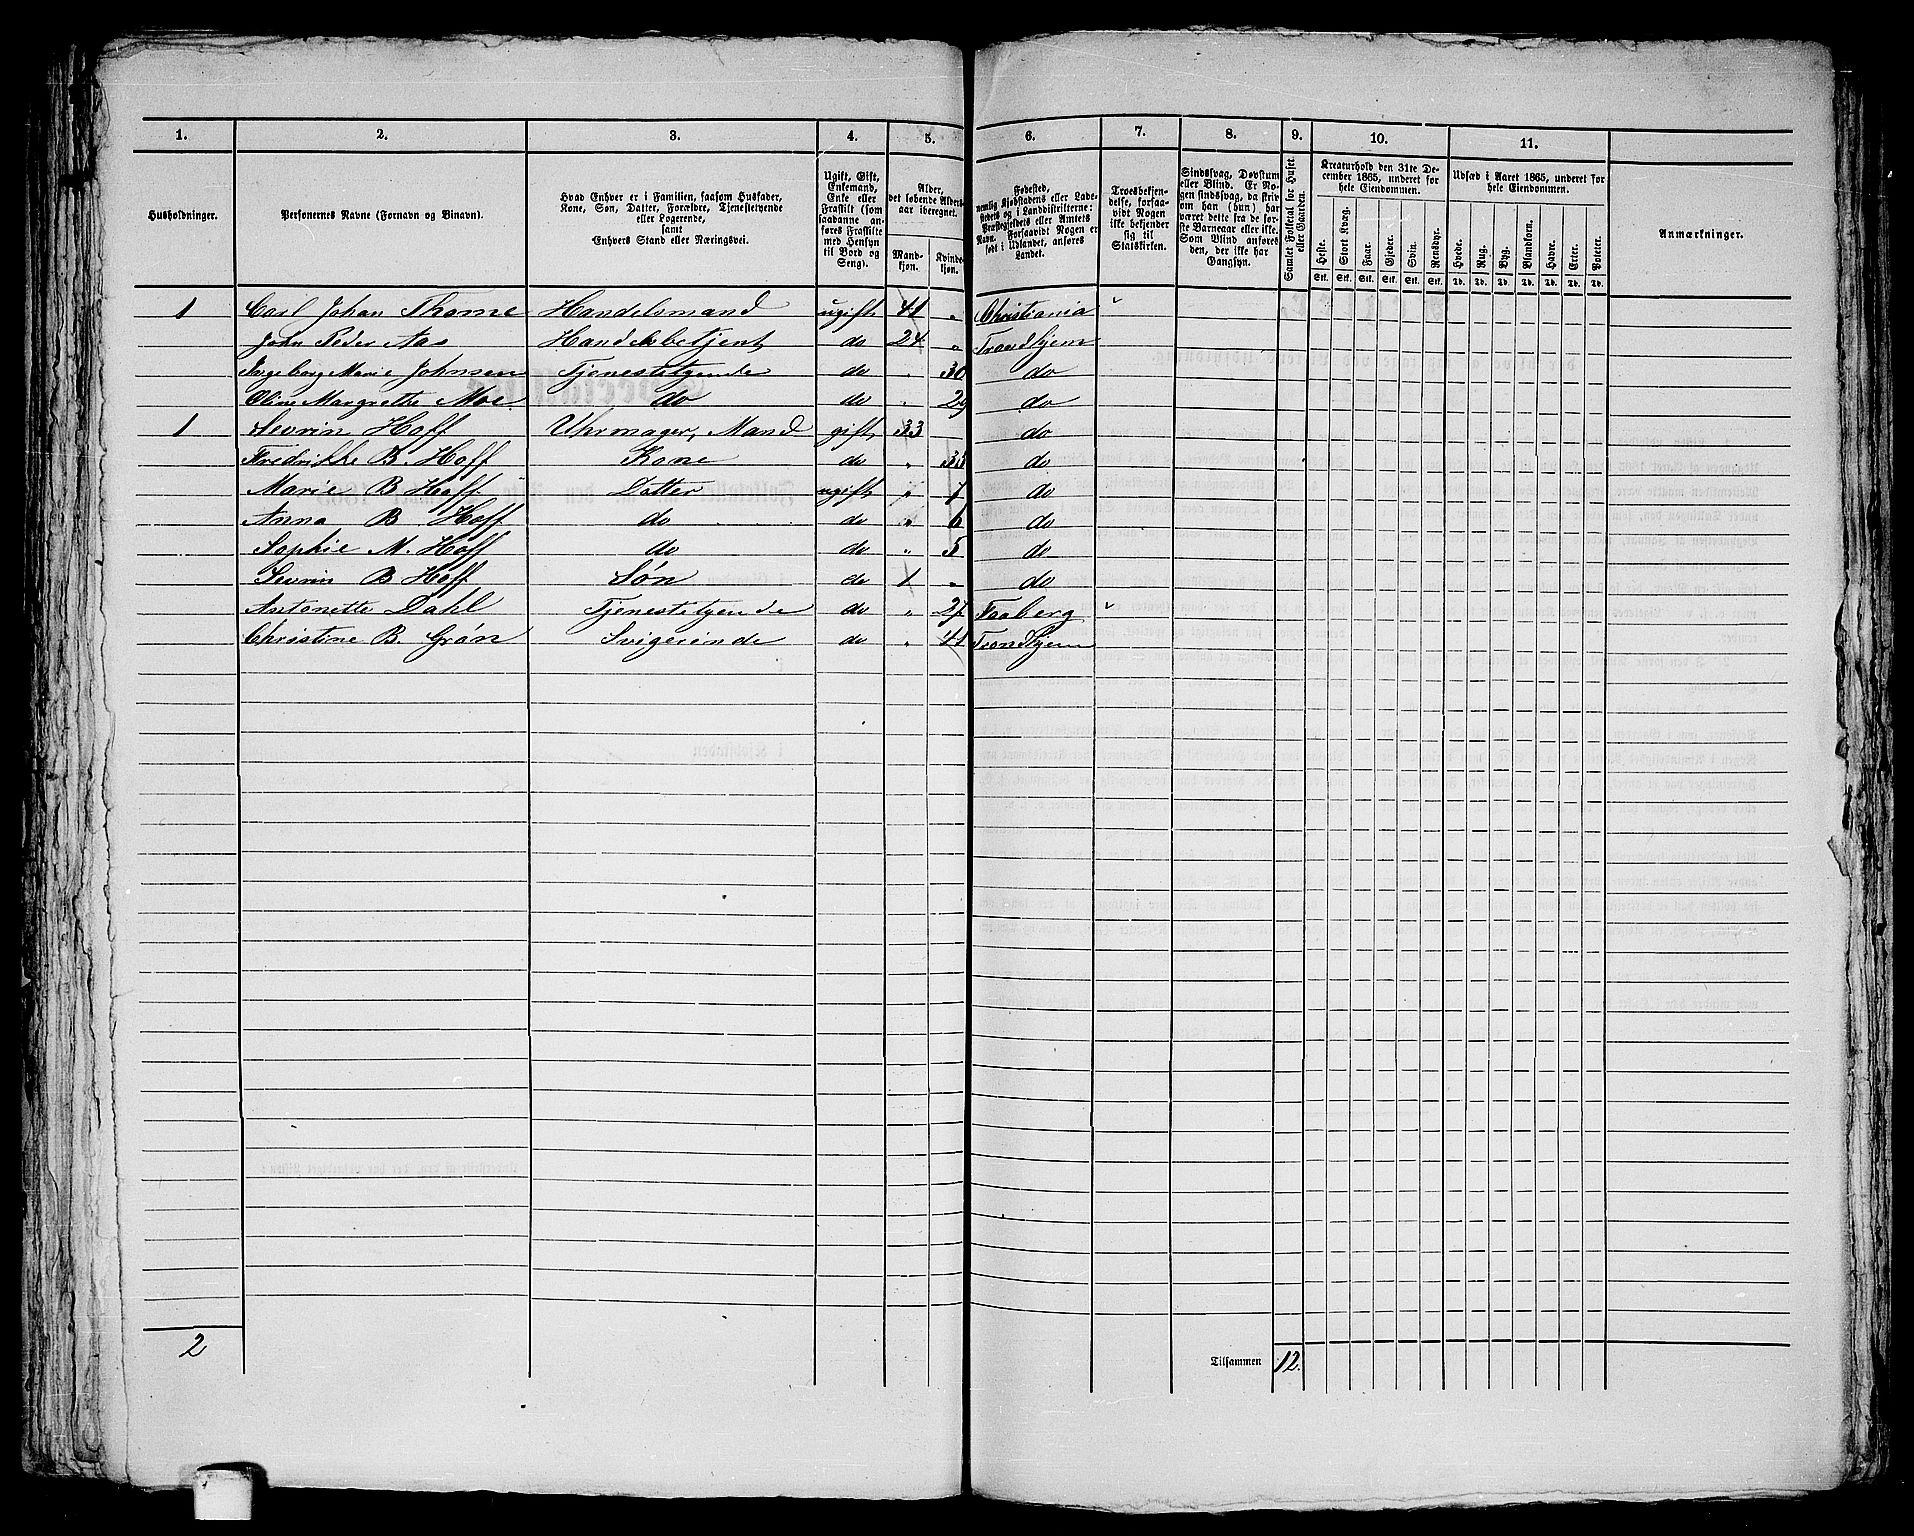 1. 2. 3. 4. 5. 6. 7. 8. 9. 10. 11.
Husholdninger.
Personernes Navne (Fornavn og Binavn).
Hvad Enhver er i Familien, saasom Husfader,
Kone, Søn, Datter, Forældre, Tjenestetyende
eller Logerende,
samt
Enhvers Stand eller Næringsvei.
Ugift, Gift,
Enkemand,
Enke eller
Fraskilt (som
saadanne an-
føres Fraskilte
med Hensyn
til Bord og
Seng).
Alder,
det løbende Alders-
aar iberegnet.
Mand-
kjøn.
Kvinde-
kjøn.
Fødested,
nemlig Kjøbstadens eller Lade-
stedets og i Landdistrikterne:
Præstegjeldets eller Amtets
Navn. Forsaavidt Nogen er
født i Udlandet, anføres
Landet.
Troesbekjen-
delse, forsaa-
vidt Nogen
ikke bekjender
sig til
Statskirken.
Sindssvag, Døvstum
eller Blind. Er No-
gen sindssvag, da skriv
om han (hun) har
været dette fra de før-
ste Barneaar eller ikke.
Som Blind anføres
den, der ikke har
Gangsyn.
Samlet Folketal for Huset
eller Gaarden.
Kreaturhold den 31te De-
cember 1865, underet for
hele Eiendommen.
Heste. Stort Kvæg. Faar. Gjeder. Svin. Rensdyr.
Stk. Stk. Stk. Stk. Stk. Stk.
Udsæd i Aaret 1865, underet for
hele Eiendommen.
Hvede. Rug. Byg. Blandkorn. Havre. Erter. Poteter.
Td. Td. Td. Td. Td. Td. Td.
Anmærkninger.
1 Carl Johan Thome Handelsmand ugift 41 „ Christiania
John Peder Aas Handelsbetjent do 24 „ Trondhjem
Ingeborg Marie Johnsen Tjenestetyende do „ 30 do
Oline Margrethe Moe do do „ 29 do
1 Sevrin Hoff Uhrmager, Mand gift 33 do
Fredrikke B. Hoff Kone do „ 33 do
Marie B Hoff Datter ugift „ 7 do
Anna B. Hoff do do „ 6 do
Sophie M. Hoff do do „ 5 do
Sevrin B Hoff Søn do 1 „ do
Antonette Dahl Tjenestetyende do „ 27 Faaberg
Christine B. Grøn Svigerinde do „ 41 Trondhjem
2 Tilsammen 12.